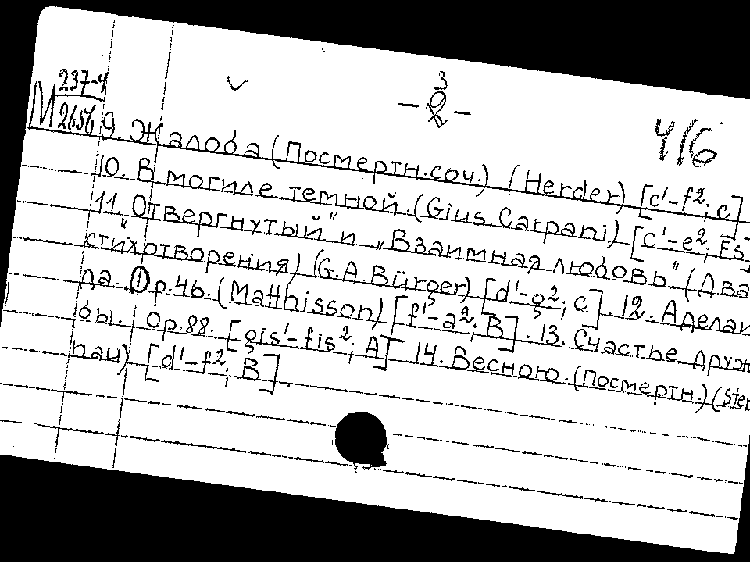 М 237-4
2656
3
- 2 -
416
9. Жалоба (Посмертн. соч.) (Herder) [c'-f²; c]
10. В могиле темной. (Gius Carpani) [c'-e²; Es
11. „Отвергнутый" и „Взаимная любовь" (Два
стихотворения) (G. A. Bürger) [d'-g²; c]. 12. Аделаи
да. Op. 46. (Matthisson) [f'-a²; B]. 13. Счастье друж
бы. Op. 88. [gis'-fis²; A] 14. Весною. (Посмертн.) (Ster
hau) [d'-f²; B].